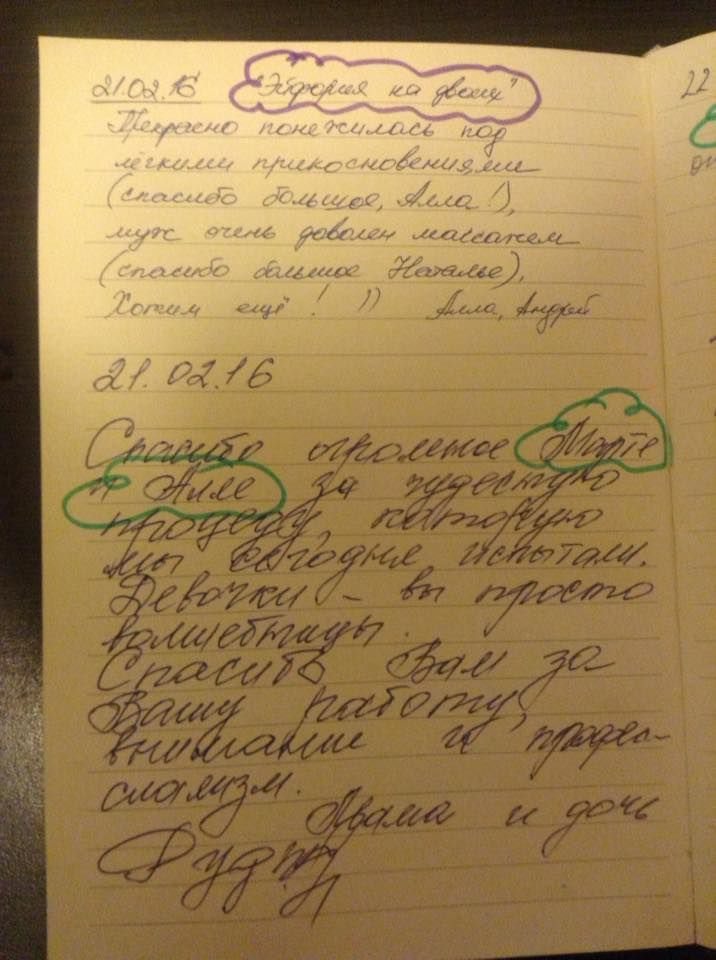 21.02.16 "Эйфория на двоих"
Прекрасно понежилась под
лёгкими прикосновениями
(спасибо большое, Алла!),
муж очень доволен массажем
(спасибо большое Наталье),
Хотим ещё! ))  Алла, Андрей
21.02.16
Спасибо огромное Марте
и Алле за чудесную
процедуру, которую
мы сегодня испытали.
Девочки – вы просто
волшебницы.
Спасибо Вам за
Вашу работу,
внимание и профес-
сионализм.
и дочь
22